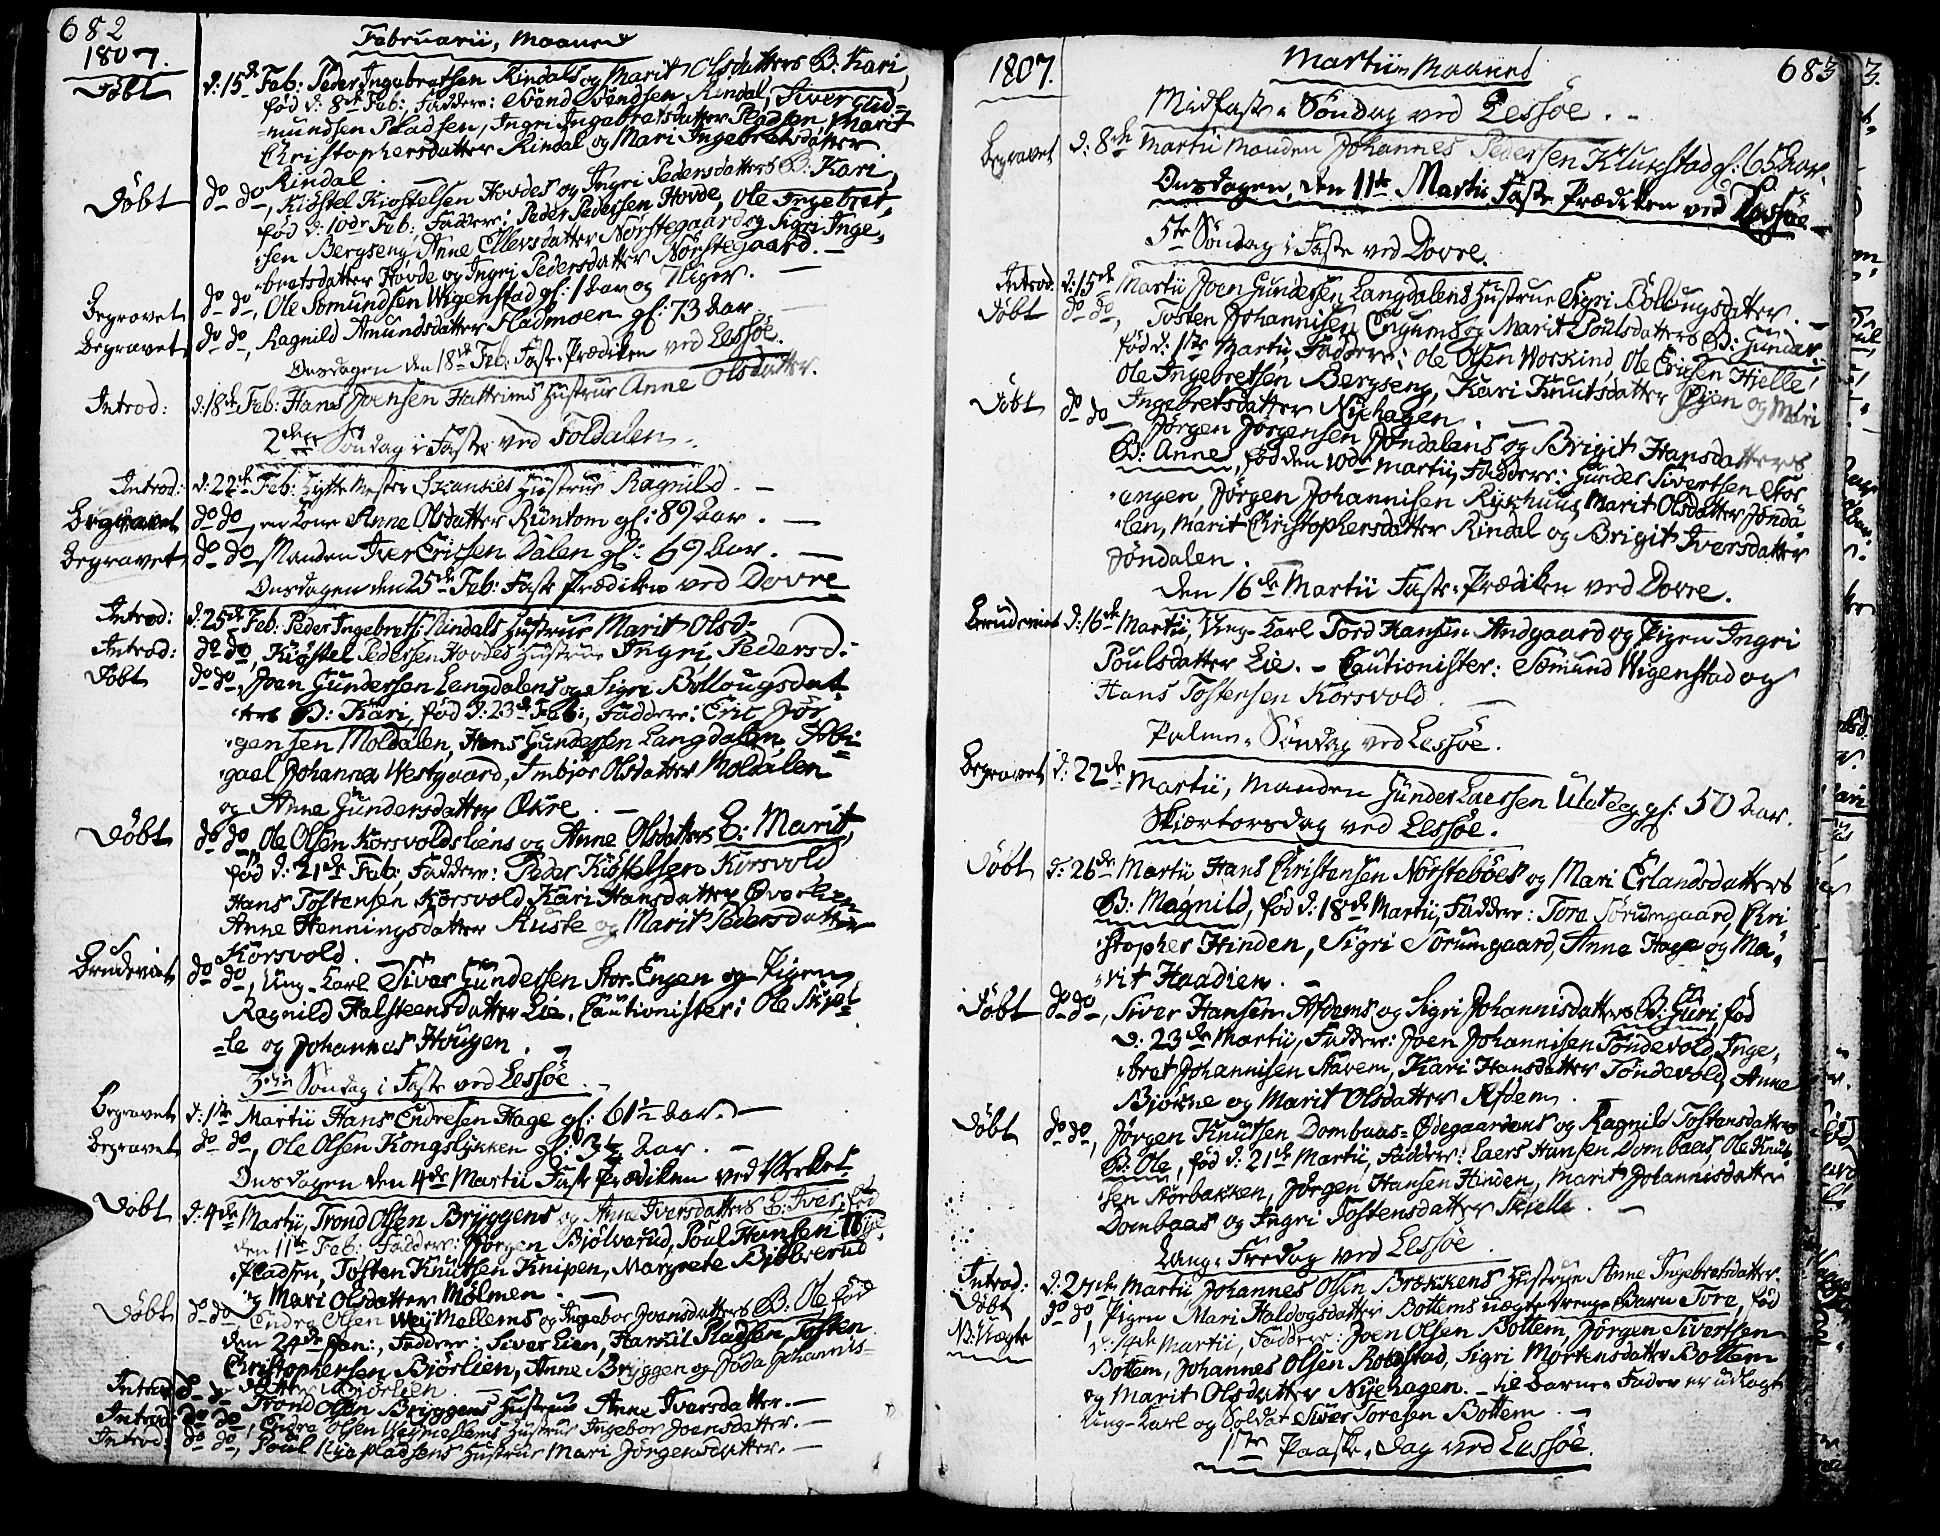 682
1807.
Februarii, Maaned
Døbt d: 15de Feb: Peder Ingebretsen Rindals og Marit Olsdatters B: Kari,
fød d: 8de Feb:, Faddere: Svend Svendsen Rindal, Siver Gud=
=mundsen Pladsen, Ingri Ingebretsdatter Pladsen, Marit
Christophersdatter Rindal og Mari Ingebretsdatter
Rindal. —
Døbt do do, Kiøstel Kiøstelsen Hovdes og Ingri Pedersdatters B: Kari,
fød d: 10de Feb:, Faddere: Peder Pedersen Hovde, Ole Ingebret=
=sen Bergseng, Anne Ellevsdatter Nørstegaard og Sigri Inge=
=bretsdatter Hovde og Ingri Pedersdatter Nørstegaard. —
Begravet do do, Ole Somundsen Wigenstad gl: 1 Aar og Uger. —
Begravet do do, Ragnild Amundsdatter Fladmoen gl: 73 Aar. —
Onsdagen den 18de Feb: Faste-Prædiken ved Lessøe.
Introd: d: 18de Feb: Hans Joensen Hattrems Hustrue Anne Olsdatter.
2den Søndag i Faste ved Foldalen.
Introd: d: 22de Feb: Hytte Mester Skankes Hustrue Ragnild. —
Begravet do do, en Kone Anne Olsdatter Runtom gl: 89 Aar. —
Begravet do do Manden Iver Ericsen Dalen gl: 69 Aar. —
Onsdagen den 25de Feb: Faste Prædiken ved Dovre
Introd: d: 25de Feb: Peder Ingebrets: Rindals Hustrue Marit Olsd:
Introd: do do, Kiøstel Pedersen Hovdes Hustrue Ingri Pedersd:
Døbt do do, Joen Gundersen Langdalens og Sigri Bollougsdat=
=ters B: Kari, fød d: 23de Feb:, Faddere: Eric Jør=
=gensen Moldalen, Hans Gundersen Langdalen, Abi=
=gael Johanna Westgaard, Imbjør Olsdatter Moldalen
og Anne Gundersdatter Økre. —
Døbt do do, Ole Olsen Korsvoldsliens og Anne Olsdatters B: Marit,
fød d: 21de Feb:, Faddere: Peder Kiøstelsen Korsvold
Hans Tostensen Korsvold, Kari Hansdatter Øverlien
Anne Henningsdatter Ruste og Marit Pedersdatter
Korsvold. —
Brudeviet do do, Ung-Karl Siver Gundersen Stor-Engen og Pigen
Ragnild Halsteensdatter Lie. Cautionister: Ole Skiøt=
=le og Johannes Hougen. —
3die Søndag i Faste ved Lessøe. —
Begravet d: 1ste Martii Hans Endresen Hage gl: 61½ Aar. —
Begravet do do, Ole Olsen Kongslykken gl: 3¼ Aar. —
Onsdagen den 4de Martii Faste Prædiken ved Werket
Døbt d: 4de Martii, Trond Olsen Bryggens og Anne Iversdatters B: Iver, fød
den 11te Feb: Faddere: Jørgen Biølverud, Poul Hansen Nye=
=Pladsen, Tosten Knutsen Knipen, Margrete Biølverud
og Mari Olsdatter Mølmen. —
Døbt do do Endre Olsen Wey Mellems og Ingebor Joensdatters B: Ole, fød
den 24de Jan:, Faddere: Siver Lien, Hamund Pladsen, Tosten
Christophersen Biørlien, Anne Bryggen og Joda Johannis=
=datter Biørlien. —
Introd: do do Trond Olsen Bryggens Hustrue Anne Iversdatter. —
Introd: do do, Endre Olsen Weymellems Hustrue Ingebor Joensdatter. —
Introd: do do, Poul Nyepladsens Hustrue Mari Jørgensdatter. —
1807.
Martii Maaned
683
Midfaste Søndag ved Lessøe. —
Begravet d: 8de Martii Manden Johannes Pedersen Klukstad gl: 65 Aar.
Onsdagen, den 11te Martii Faste Prædiken ved Lessøe
5te Søndag i Faste ved Dovre.
Introd: d: 15de Martii Joen Gundersen Langdalens Hustrue Sigri Bollougsdatter. —
Døbt do do, Tosten Johannisen Engums og Marit Poulsdatters B: Gunder,
fød d: 1ste Martii, Faddere: Ole Olsen Workind, Ole Ericsen Hjelle,
Ole Ingebretsen Bergseng, Kari Knutsdatter Pigen og Mari
Ingebretsdatter Nyehagen. —
Døbt do do Jørgen Jørgensen Jøndalens og Brigit Hansdatters
B: Anne, fød den 10de Martii, Faddere: Gunder Sivertsen Stor=
=engen, Jørgen Johannisen Rykhuus, Marit Olsdatter Jønda=
=len, Marit Christophersdatter Rindal og Brigit Iversdatter
Jøndalen.
Den 16de Martii Faste-Prædiken ved Dovre.
Brudeviet d: 16de Martii, Ung-Karl Tord Hansen Andgaard og Pigen Ingri
Poulsdatter Lie. — Cautionister: Somund Wigenstad og
Hans Tostensen Korsvold. —
Palme-Søndag ved Lessøe.
Begravet d: 22de Martii, Manden Gunder Larssen Ulateeg gl: 50 Aar.
Skiertorsdag ved Lessøe.
Døbt d: 26de Martii Hans Christensen Nørstebøes og Mari Erlandsdatters
B: Magnild, fød d: 18de Martii, Faddere: Tore Sørumgaard, Chri=
=stopher Hinden, Sigri Sorumgaard, Anne Hage og Ma=
=rit Haadien. —
Døbt do do, Siver Hansen Afdems og Sigri Johannisdatters B: Guri, fød
d: 23de Martii, Faddere: Joen Johannisen Tøndevold, Inge=
=bret Johannisen Stavem, Kari Hansdatter Tøndevold, Anne
Biøkne og Marit Olsdatter Afdem.
Døbt do do, Jørgen Knutsen Dombaas-Ødegaardens og Ragnild Tostensdatters
B: Ole, fød d: 21de Martii, Faddere: Laers Hansen Dombaas, Ole Knut=
=sen Storbakken, Jørgen Hansen Hinden, Marit Johannisdatter
Dombaas og Ingri Tostensdatter Skielle. —
Lang-Fredag ved Lessøe.
Introd: d: 27de Martii Johannes Olsen Brækkens Hustrue Anne Ingebretsdatter.
Døbt do do, Pigen Mari Haldogsdatter Bottems uægte Drenge Barn Tore, fød
NB: Uægte d: 14de Martii, Faddere: Joen Olsen Bottem, Jørgen Sivertsen
Bottem, Johannes Olsen Rolstad, Sigri Mortensdatter Bottem
og Marit Olsdatter Nyehagen. — til Barne-Fader er udlagt
Ung-Karl og Soldat Siver Toresen Bottem. —
1ste Paaske-Dag ved Lessøe.